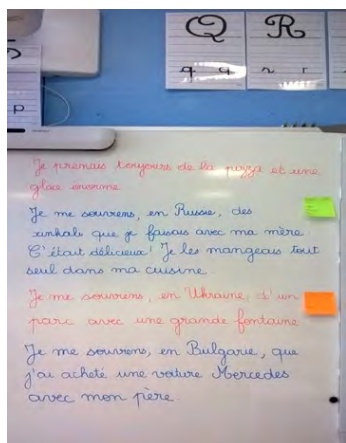 Q R
q q r r
p
Je prenais toujours de la pizza et une
glace énorme
Je me souviens, en Russie, des
xinkali que je faisais avec ma mère.
C'était délicieux! Je les mangeais tout
seul dans ma cuisine.
Je me souviens, en Ukraine d'un
parc avec une grande fontaine
Je me souviens, en Bulgarie, que
j'ai acheté une voiture Mercedes
avec mon père